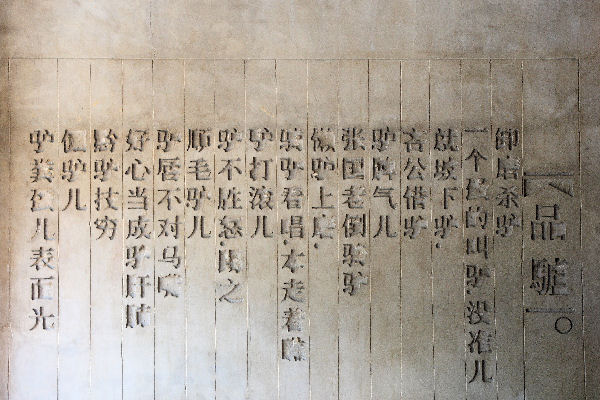 「品驢」。
卸磨杀驴
一个的叫驴·没准儿
就坡下驴·
公借驴
驴脾气儿
张国老倒骑驴
懒驴上磨·
骑驴看唱·本走着瞧
驴打滚儿
驴不胜怒·蹄之
顺毛驴儿
驴唇不对马嘴
好心当成驴肝肺
黔驴技穷
倔驴儿
驴粪儿表面光